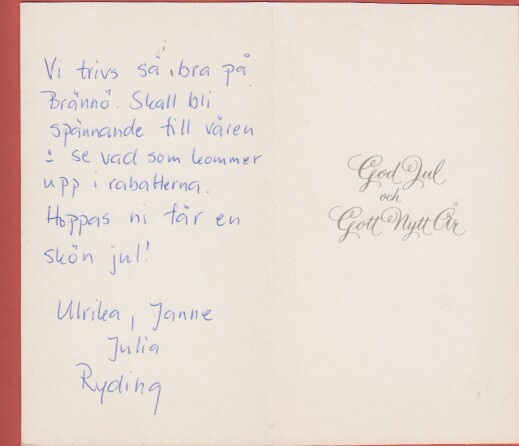 Vi trivs så bra på
Brännö. Skall bli
spännande till våren
: se vad som kommer
upp i rabatterna.
Hoppas ni får en
skön jul!
Ulrika, Janne
Julia
Ryding
God Jul
och
Gott Nytt År